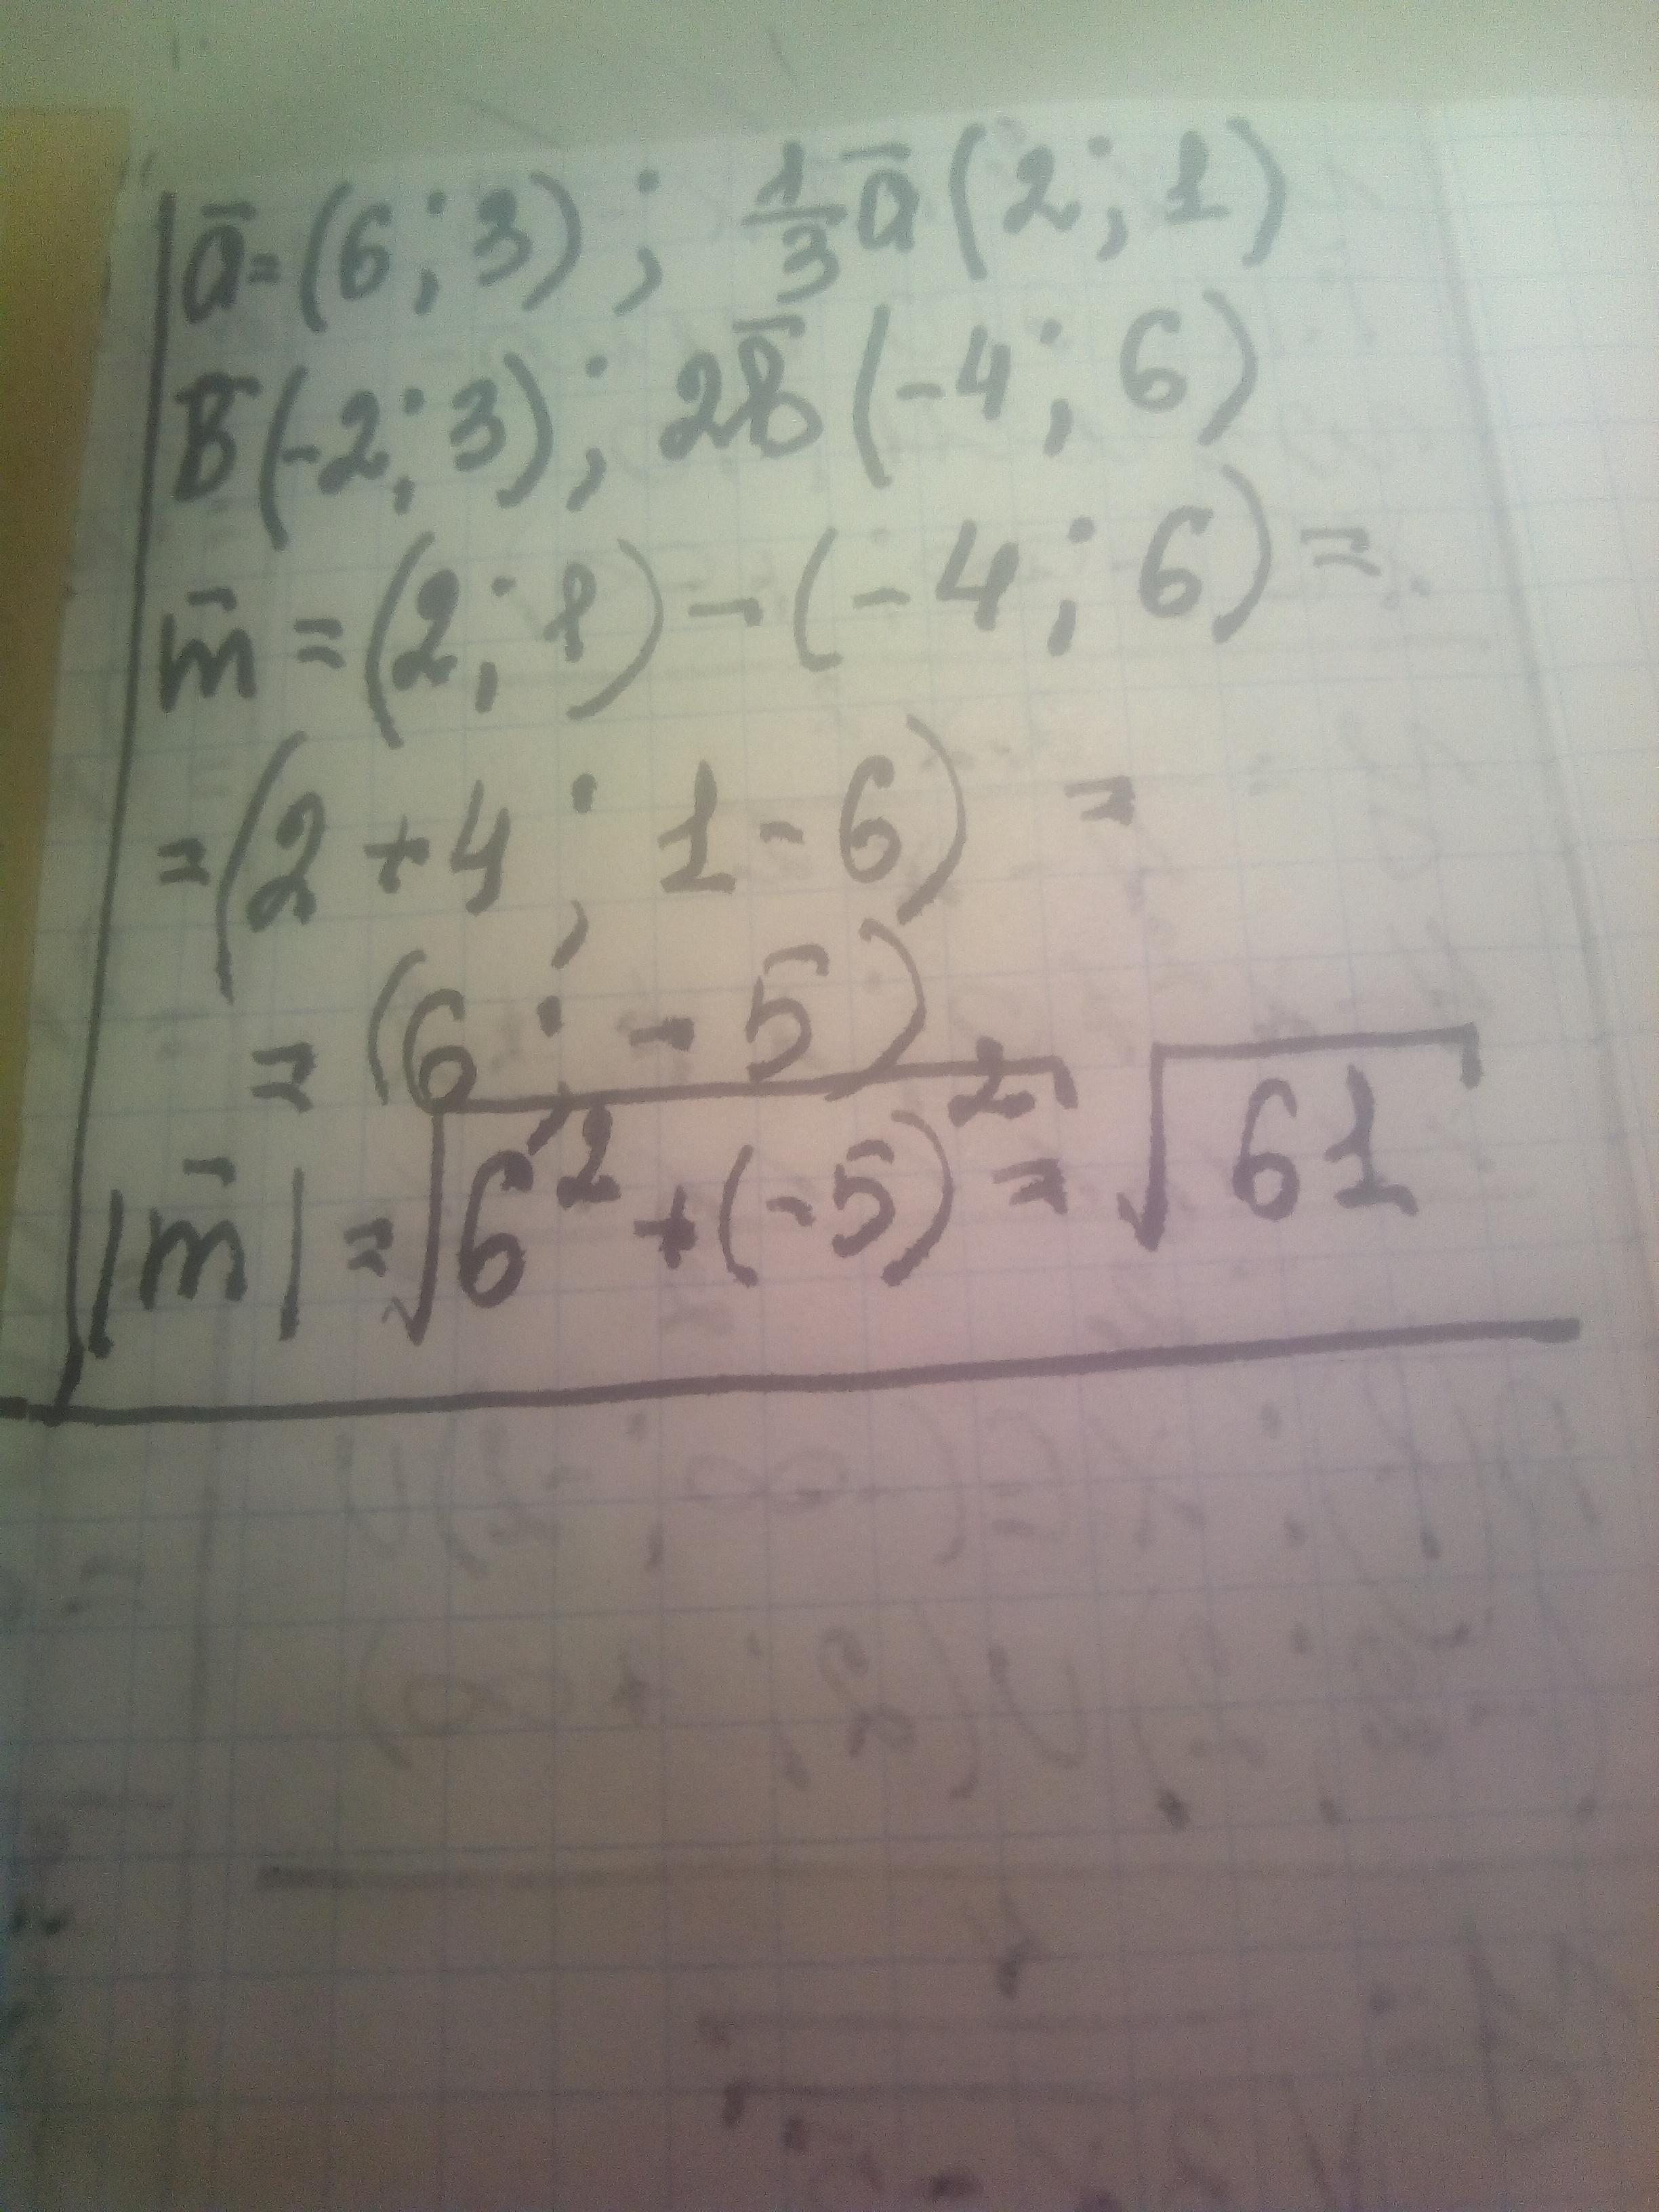 a̅=(6;3); 1/3 a̅(2;1)
b̅(-2;3); 2b̅(-4;6)
m̅=(2;1)-(-4;6)=
=(2+4; 1-6) =
=(6; -5)
|m̅|=√(6²+(-5)²)=√61